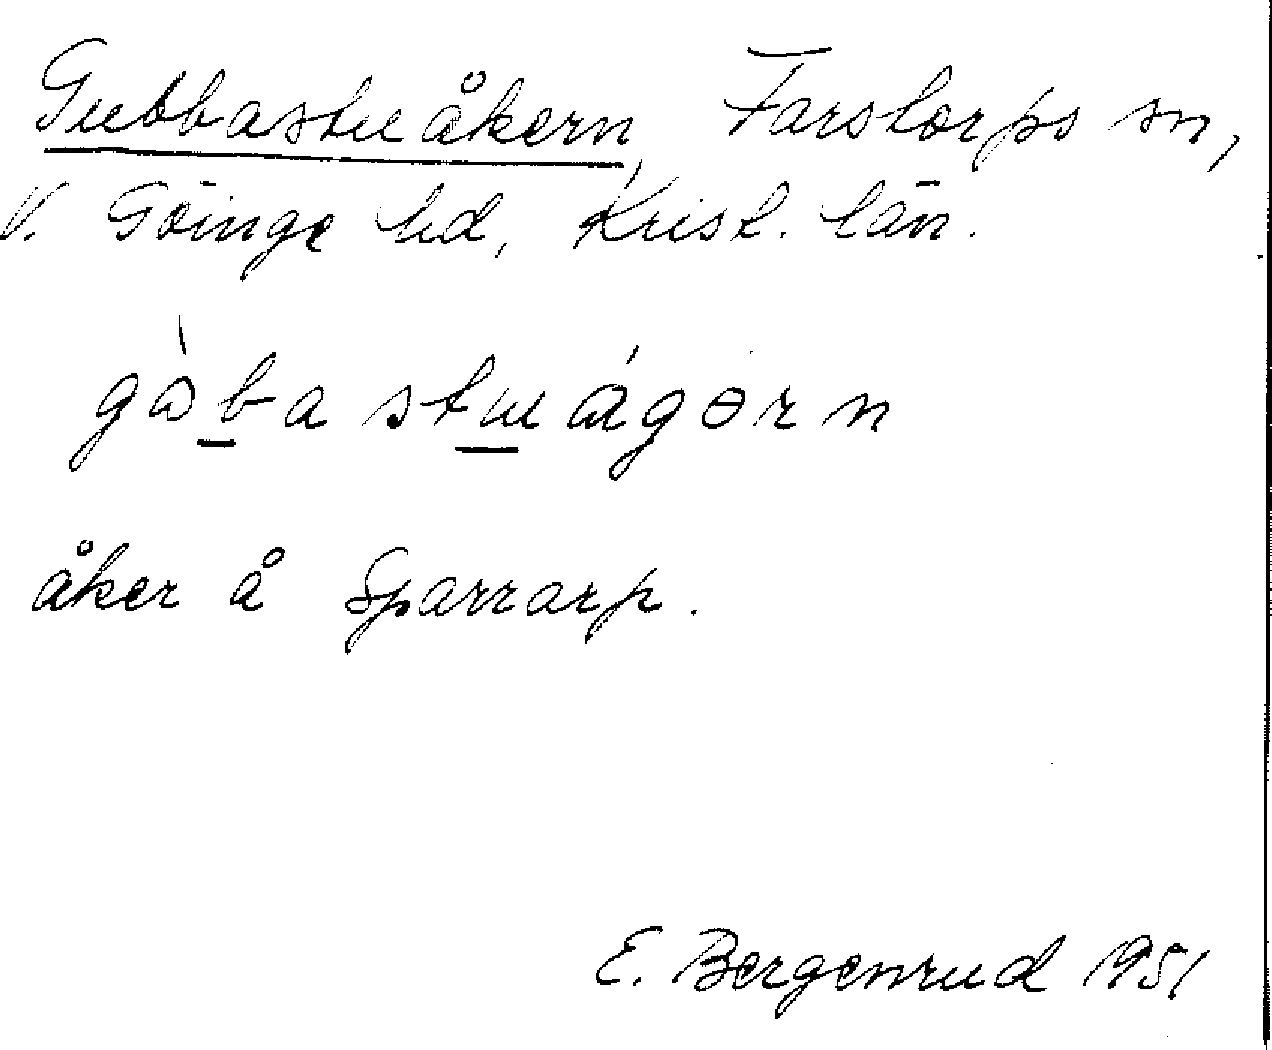 Gubbastuåkern, Farstorps sn,
V. Göinge hd, Krist. län.
åker å Sparrarp.
E. Bergenrud 1951